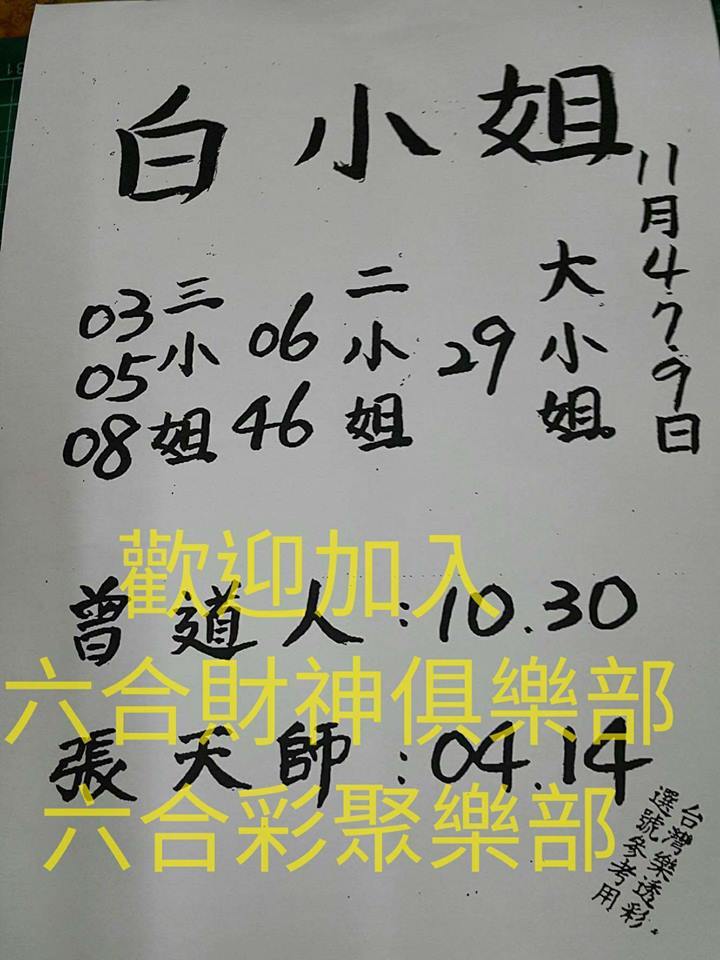 白小姐
11月4.7.9日
大小姐
29
二小姐
06
46
三小姐
03
05
08
歡迎加入
曾道人:10.30
六合財神俱樂部
張天師:04.14
六合彩聚樂部
台灣樂透彩.
選號參考用